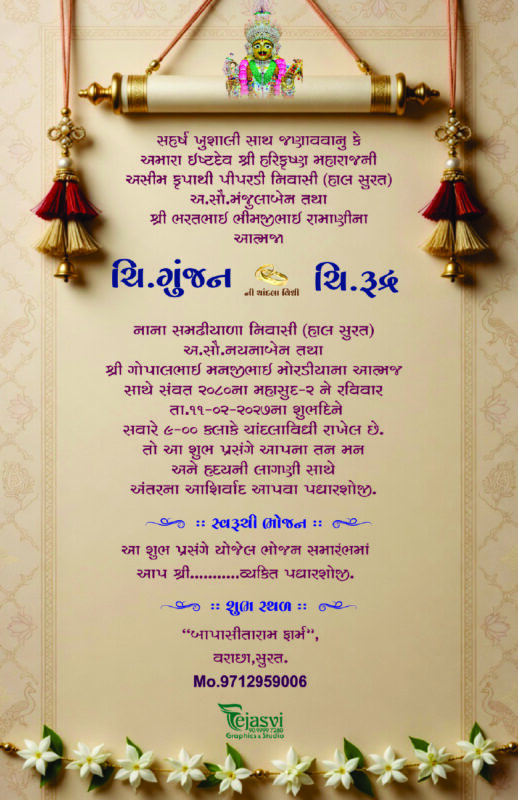 સહર્ષ ખુશાલી સાથ જણાવવાનુ કે
અમારા ઈષ્ટદેવ શ્રી હરિકૃષ્ણ મહારાજની
અસીમ કૃપાથી પીપરડી નિવાસી (હાલ સુરત)
અ.સૌ.મંજુલાબેન તથા
શ્રી ભરતભાઈ ભીમજીભાઈ રામાણીના
આત્મજા
ચિ.ગુંજન ની ચાંદલા વિધી ચિ.રૂદ્ર
નાના સમઢીયાળા નિવાસી (હાલ સુરત)
અ.સૌ.નયનાબેન તથા
શ્રી ગોપાલભાઈ મનજીભાઈ મોરડીયાના આત્મજ
સાથે સંવત ૨૦૮૦ના મહાસુદ-૨ ને રવિવાર
તા.૧૧-૦૨-૨૦૨૭ના શુભદિને
સવારે ૯-૦૦ કલાકે ચાંદલાવિધી રાખેલ છે.
તો આ શુભ પ્રસંગે આપના તન મન
અને હૃદયની લાગણી સાથે
અંતરના આશિર્વાદ આપવા પધારશોજી.
:: સ્વરૂચી ભોજન ::
આ શુભ પ્રસંગે યોજેલ ભોજન સમારંભમાં
આપ શ્રી...........વ્યકિત પધારશોજી.
:: શુભ સ્થળ ::
“બાપાસીતારામ ફાર્મ”,
વરાછા,સુરત.
Mo.9712959006
Tejasvi
Graphics & Studio